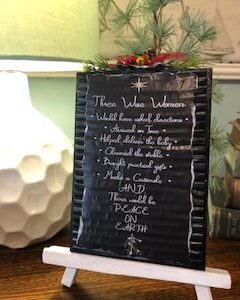 Three Wise Women
Would have asked directions
Arrived on Time
Helped deliver the baby
Cleaned the stable
Brought practical gifts
Made a Casserole
AND
There would be
PEACE
ON
EARTH